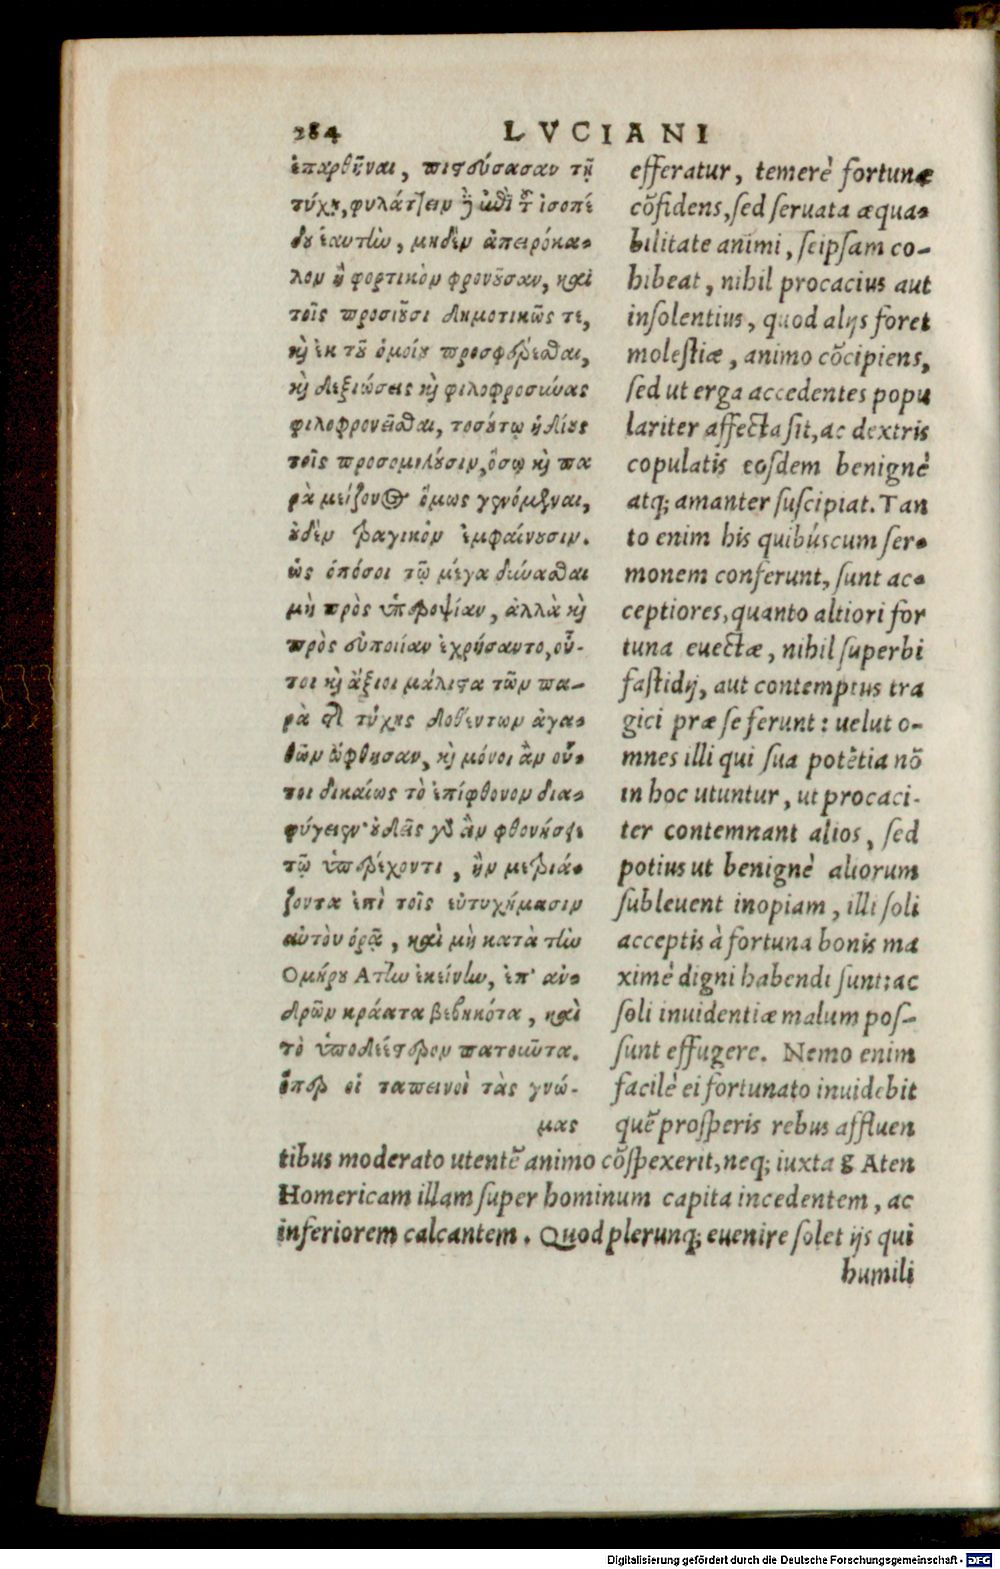 284 LVCIANI
ἐπαρθῆναι, πιστεύσασαν τῇ
τύχῃ, φυλάττειν ἢ ἐπὶ τοῦ ἰσοπέ
δου ἑαυτὴν, μηδὲν ἀπειρόκα-
λον ἢ φορτικὸν φρονοῦσαν, καὶ
τοῖς προσιοῦσι δημοτικῶς τε,
καὶ ἐκ τοῦ ὁμοίου προσφέρεσθαι,
καὶ δεξιώσεις καὶ φιλοφροσύνας
φιλοφρονεῖσθαι, τοσούτῳ ἡδίους
τοῖς προσομιλοῦσιν, ὅσῳ καὶ πα
ρὰ μείζονος ὅμως γενόμεναι,
οὐδὲν τραγικὸν ἐμφαίνουσιν.
ὡς ὁπόσοι τῷ μέγα δύνασθαι
μὴ πρὸς ὑπεροψίαν, ἀλλὰ καὶ
πρὸς εὐποιίαν ἐχρήσαντο, οὗ-
τοι καὶ ἄξιοι μάλιστα τῶν πα-
ρὰ τῆς τύχης δοθέντων ἀγα-
θῶν ὤφθησαν, καὶ μόνοι ἂν οὗ-
τοι δικαίως τὸ ἐπίφθονον δια-
φύγειεν· οὐδεὶς γὰρ ἂν φθονήσειε
τῷ ὑπερέχοντι, ἢν μετριά-
ζοντα ἐπὶ τοῖς εὐτυχήμασιν
αὐτὸν ὁρᾷ, καὶ μὴ κατὰ τὴν
Ομήρου Ατην ἐκείνην, ἐπ' ἀν-
δρῶν κράατα βεβηκότα, καὶ
τὸ ὑποδεέστερον πατοῦντα.
ὅπερ οἱ ταπεινοὶ τὰς γνώ-
μας
efferatur, temerè fortunæ
cōfidens, sed seruata æqua-
bilitate animi, seipsam co-
hibeat, nihil procacius aut
insolentius, quod alijs foret
molestiæ, animo cōcipiens,
sed ut erga accedentes popu
lariter affecta sit, ac dextris
copulatis eosdem benignè
atq; amanter suscipiat. Tan
to enim his quibúscum ser-
monem conferunt, sunt ac-
ceptiores, quanto altiori for
tuna euectæ, nihil superbi
fastidij, aut contemptus tra
gici præ se ferunt: uelut o-
mnes illi qui sua potētia nō
in hoc utuntur, ut procaci-
ter contemnant alios, sed
potius ut benignè aliorum
subleuent inopiam, illi soli
acceptis à fortuna bonis ma
ximè digni habendi sunt: ac
soli inuidentiæ malum pos-
sunt effugere. Nemo enim
facilè ei fortunato inuidebit
quē prosperis rebus affluen
tibus moderato utentē animo cōspexerit, neq; iuxta Aten
Homericam illam super hominum capita incedentem, ac
inferiorem calcantem. Quod plerunq; euenire solet ijs qui
humili
Digitalisierung gefördert durch die Deutsche Forschungsgemeinschaft - DFG